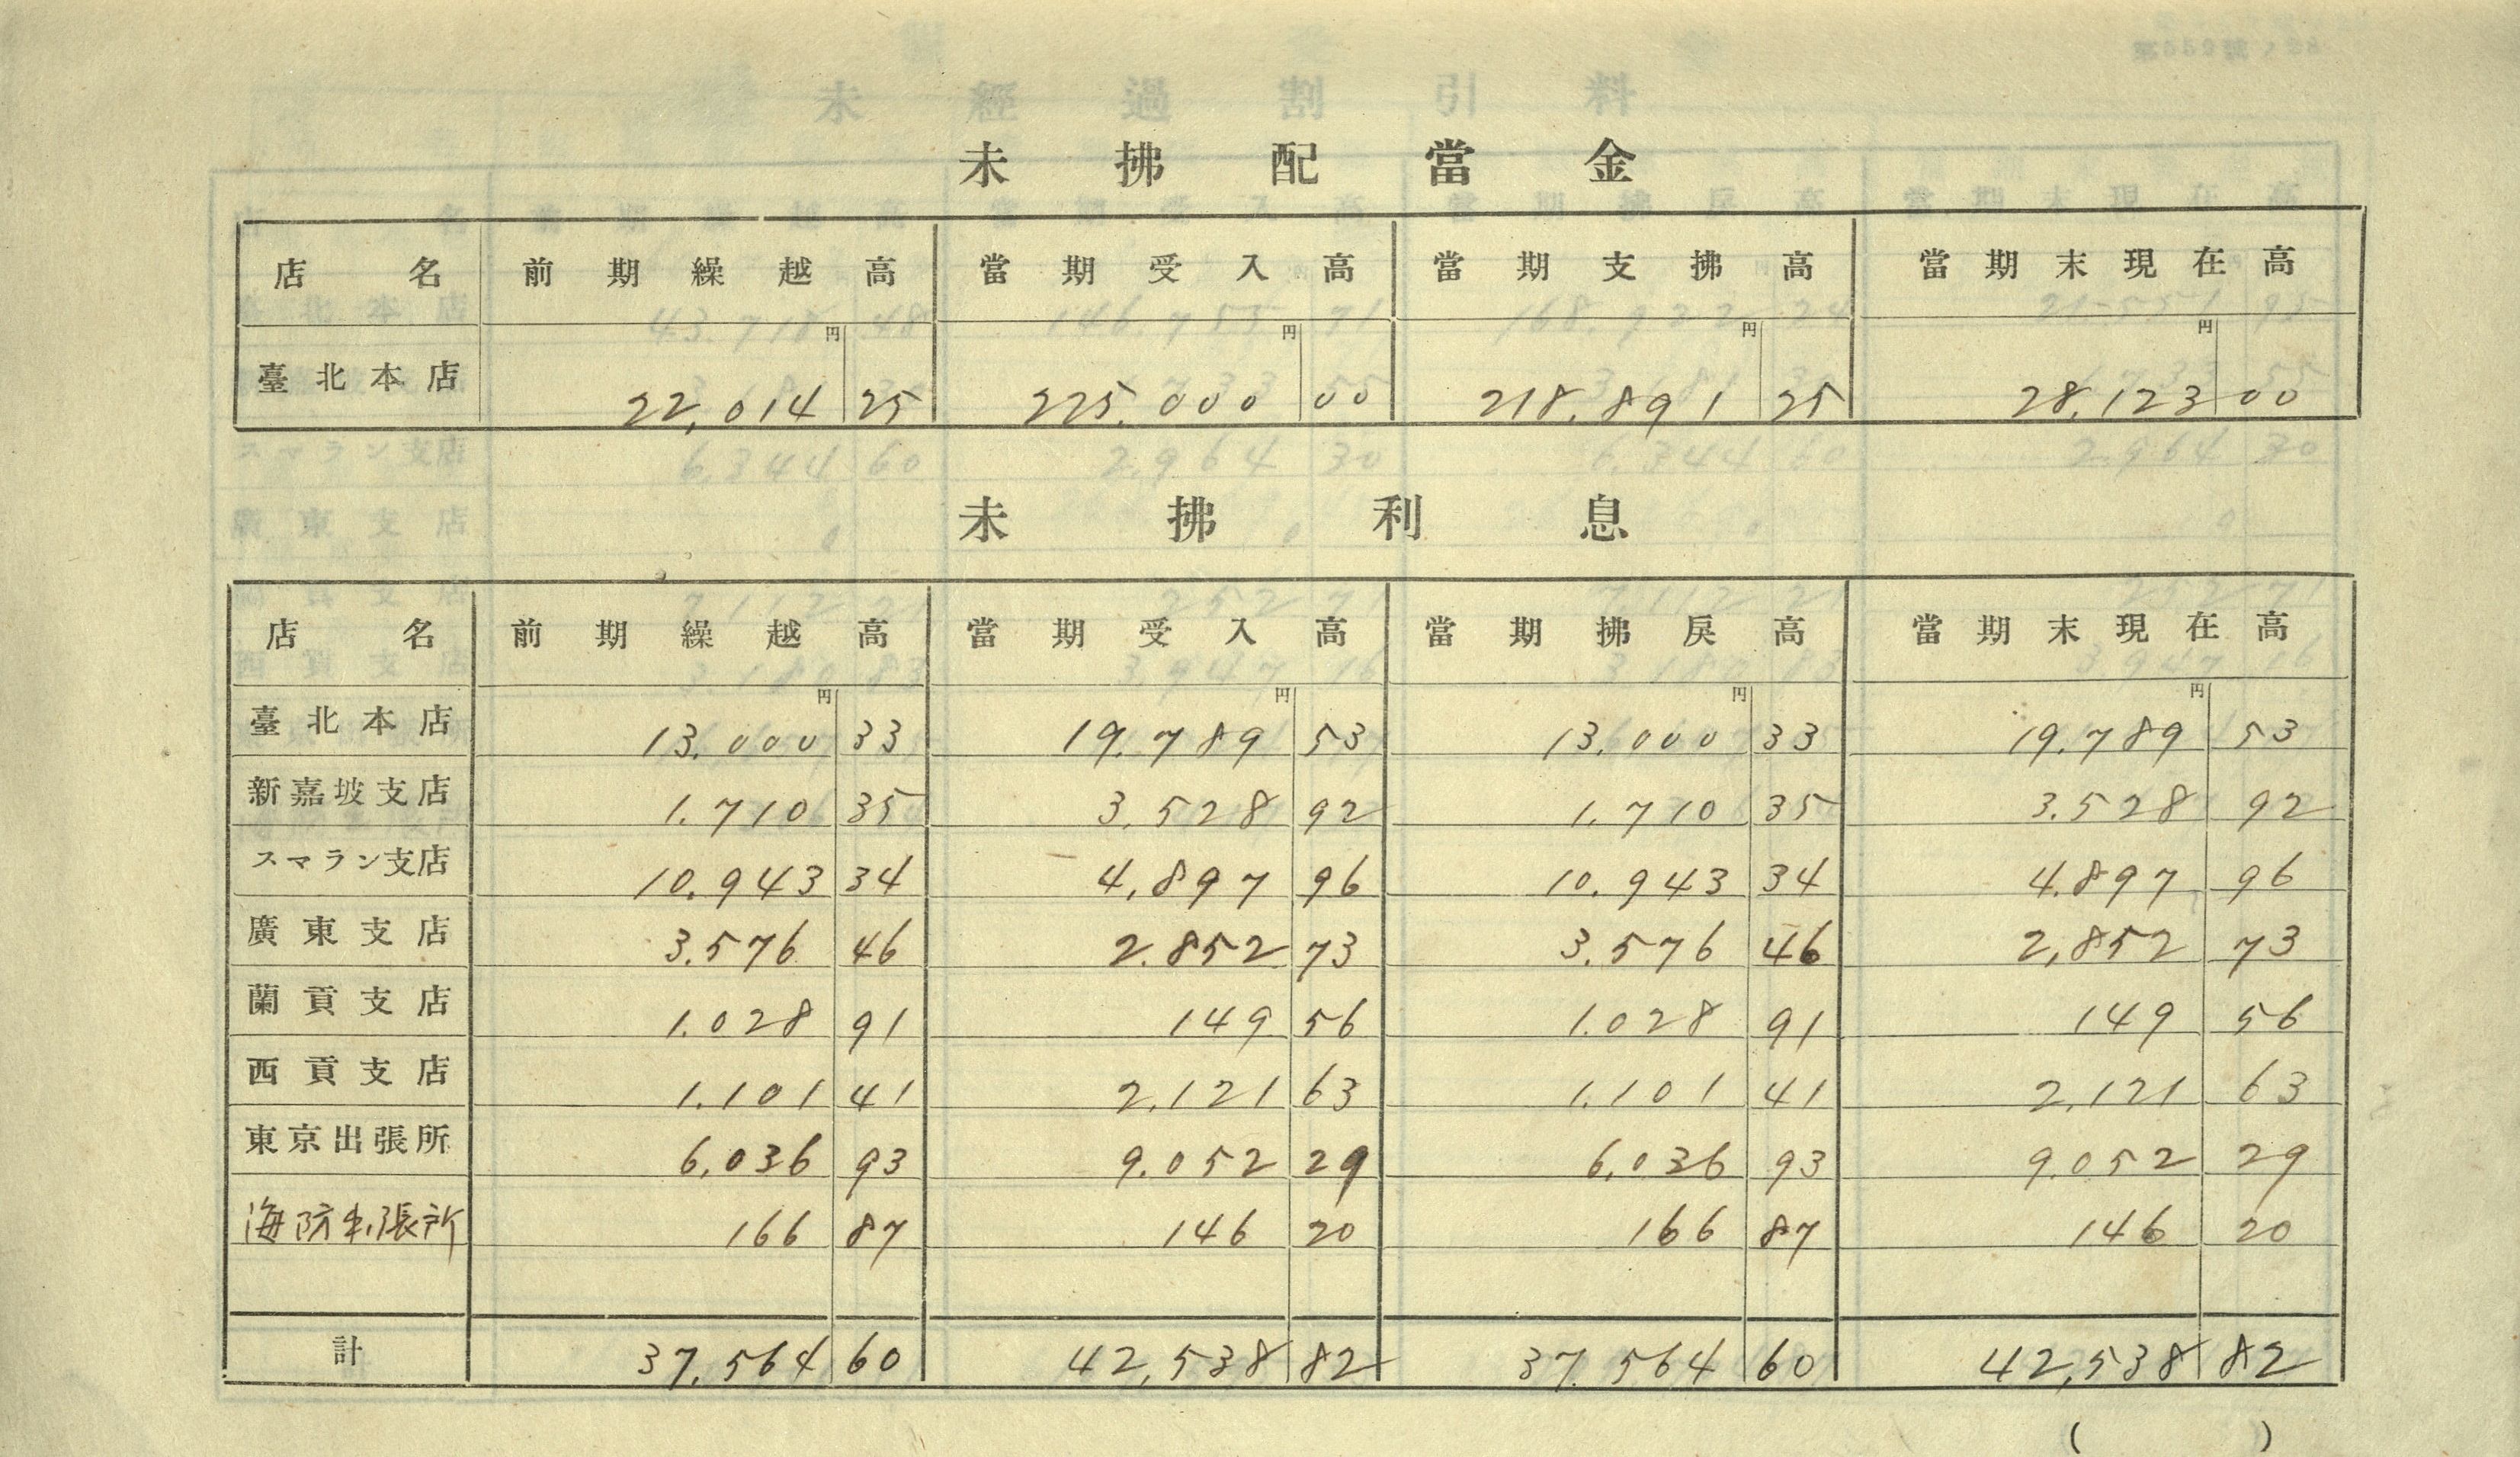 未拂配當金
店名 前期繰越高 當期受入高 當期支拂高 當期末現在高
円 円 円 円
臺北本店 22,014 25 225.000 00 218.891 25 28,123 00
未拂利息
店名 前期繰越高 當期受入高 當期拂戻高 當期末現在高
円 円 円 円
臺北本店 13.000 33 19.789 53 13.000 33 19.789 53
新嘉坡支店 1.710 35 3.528 92 1.710 35 3.528 92
スマラン支店 10.943 34 4,897 96 10.943 34 4.897 96
廣東支店 3.576 46 2.852 73 3.576 46 2,852 73
蘭貢支店 1.028 91 149 56 1.028 91 149 56
西貢支店 1.101 41 2.121 63 1.101 41 2,121 63
東京出張所 6,036 93 9.052 29 6,036 93 9.052 29
海防出張所 166 87 146 20 166 87 146 20
計 37.564 60 42,538 82 37.564 60 42,538 82
( )